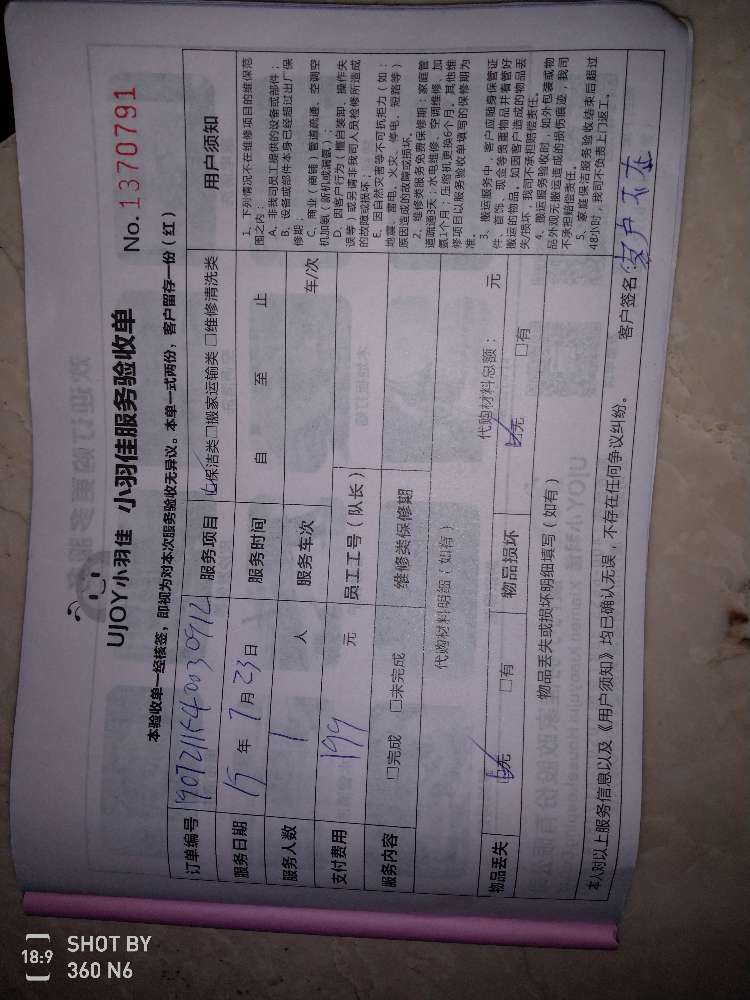 UJOY小羽佳 小羽佳服务验收单
No. 1370791
本验收单一经核签，即视为对本次服务验收无异议。本单一式两份，客户留存一份（红）
订单编号
服务项目 ☑保洁类□搬家运输类 □维修清洗类
服务日期 年 7 月 23 日
服务时间 自 至 止
服务人数 1 人
服务车次 车/次
支付费用 199 元
员工工号（队长）
服务内容 □完成 □未完成
维修类保修期
代购材料明细（如有）
代购材料总额： 元
物品丢失 ☑无 □有
物品损坏 ☑无 □有
物品丢失或损坏明细填写（如有）
用户须知
1、下列情况不在维修项目的维保范
围之内：
A、非我司员工提供的设备或部件；
B、设备或部件本身已经超过出厂保
修期；
C、商业（商铺）管道疏通、空调空
机加氨（新机或漏氨）；
D、因客户行为（擅自装卸、操作失
误等）或另请非我司人员检修所造成
的故障或损坏；
E、因自然灾害等不可抗拒力（如：
地震、雷电、火灾、停电、短路等）
原因造成的故障或损坏。
2、维修类服务免费保修期：家庭管
道疏通3天；水电维修、空调维修、加
氨1个月；压缩机更换6个月。其他维
修项目以服务验收单填写的保修期为
准。
3、搬运服务中，客户应随身保管证
件、首饰、现金等贵重物品并看管好
搬运的物品，如因客户造成的物品丢
失/损坏，我司不承担赔偿责任。
4、搬运服务验收时，如外包装或物
品外观无搬运造成的损伤痕迹，我司
不承担赔偿责任。
5、家庭保洁服务验收结束后超过
48小时，我司不负责上门返工。
本人对以上服务信息以及《用户须知》均已确认无误，不存在任何争议纠纷。
客户签名 客户不在
18:9 SHOT BY
360 N6